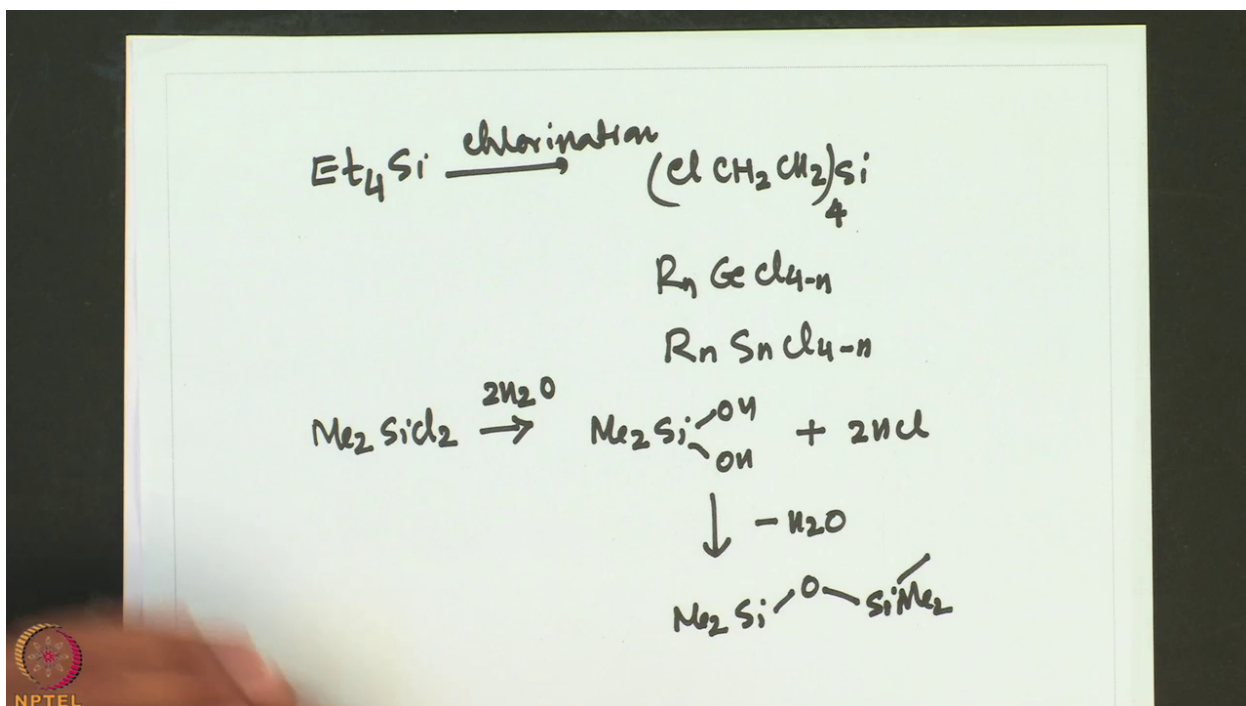 Et4Si chlorination → (ClCH2CH2)4Si
RnGeCl4-n
RnSnCl4-n
Me2SiCl2 2H2O → Me2Si OH OH + 2HCl
↓ - H2O
Me2Si O SiMe2
NPTEL